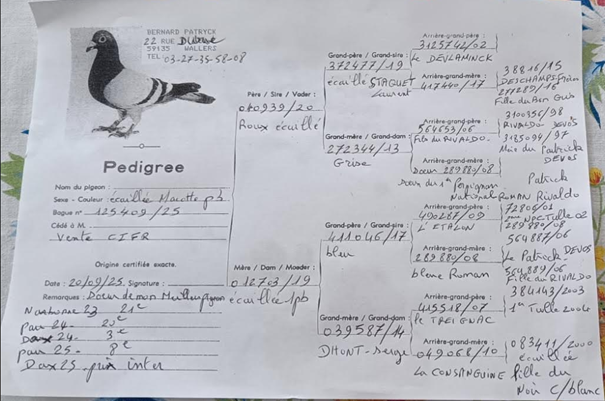 BERNARD PATRYCK
22 RUE Dubase
59135 WALLERS
TEL 03-27-35-58-08
Pedigree
Nom du pigeon :
Sexe - Couleur écaillée Macotte pb
Bague n° 125409/25
Cédé à M.
Vente CIFR
Origine certifiée exacte.
Date : 20/09/25. Signature :
Remarques : Sœur de mon Meilleur pigeon
Narbonne 23 21e
Pau 24 - 20e
Dax 24 - 3e
pau 25 - 8e
Dax 25 - prix inter
Père / Sire / Vader :
040939/20
Roux écaillé
Mère / Dam / Moeder :
012703/19
écaillée pb
Grand-père / Grand-sire :
372477/19
écaillé STAQUET
Laurent
Grand-mère / Grand-dam :
272344/13
Grise
Grand-père / Grand-sire :
411046/17
bleu
Grand-mère / Grand-dam :
039587/14
DHONT-Serge
Arrière-grand-père :
3125742/02
le DEVLAMINCK
Arrière-grand-mère :
417440/17
Arrière-grand-père :
564653/06
Fils du RIVALDO
Arrière-grand-mère :
Sœur 289880/08
Sœur du 1er Perpignan
National RUMAN Rivaldo
Arrière-grand-père :
490287/09
L'ETALON
Arrière-grand-mère :
289880/08
bleue Ruman
Arrière-grand-père :
415518/07
le TREIGNAC
Arrière-grand-mère :
049068/10
La CONSANGUINE
38816/15
DESCHAMPS Frères
277289/16
Fille du Bon Gris
3100356/98
RIVALDO DEVOS
3185094/97
Mère du Patrick
DEVOS
Patrick
72806/01
289880/08
564887/06
Le Patrick DEVOS
564889/06
Fille du RIVALDO
384143/2003
1er Tulle 2006
083411/2000
écaillée
fille du
Noir c/blanc